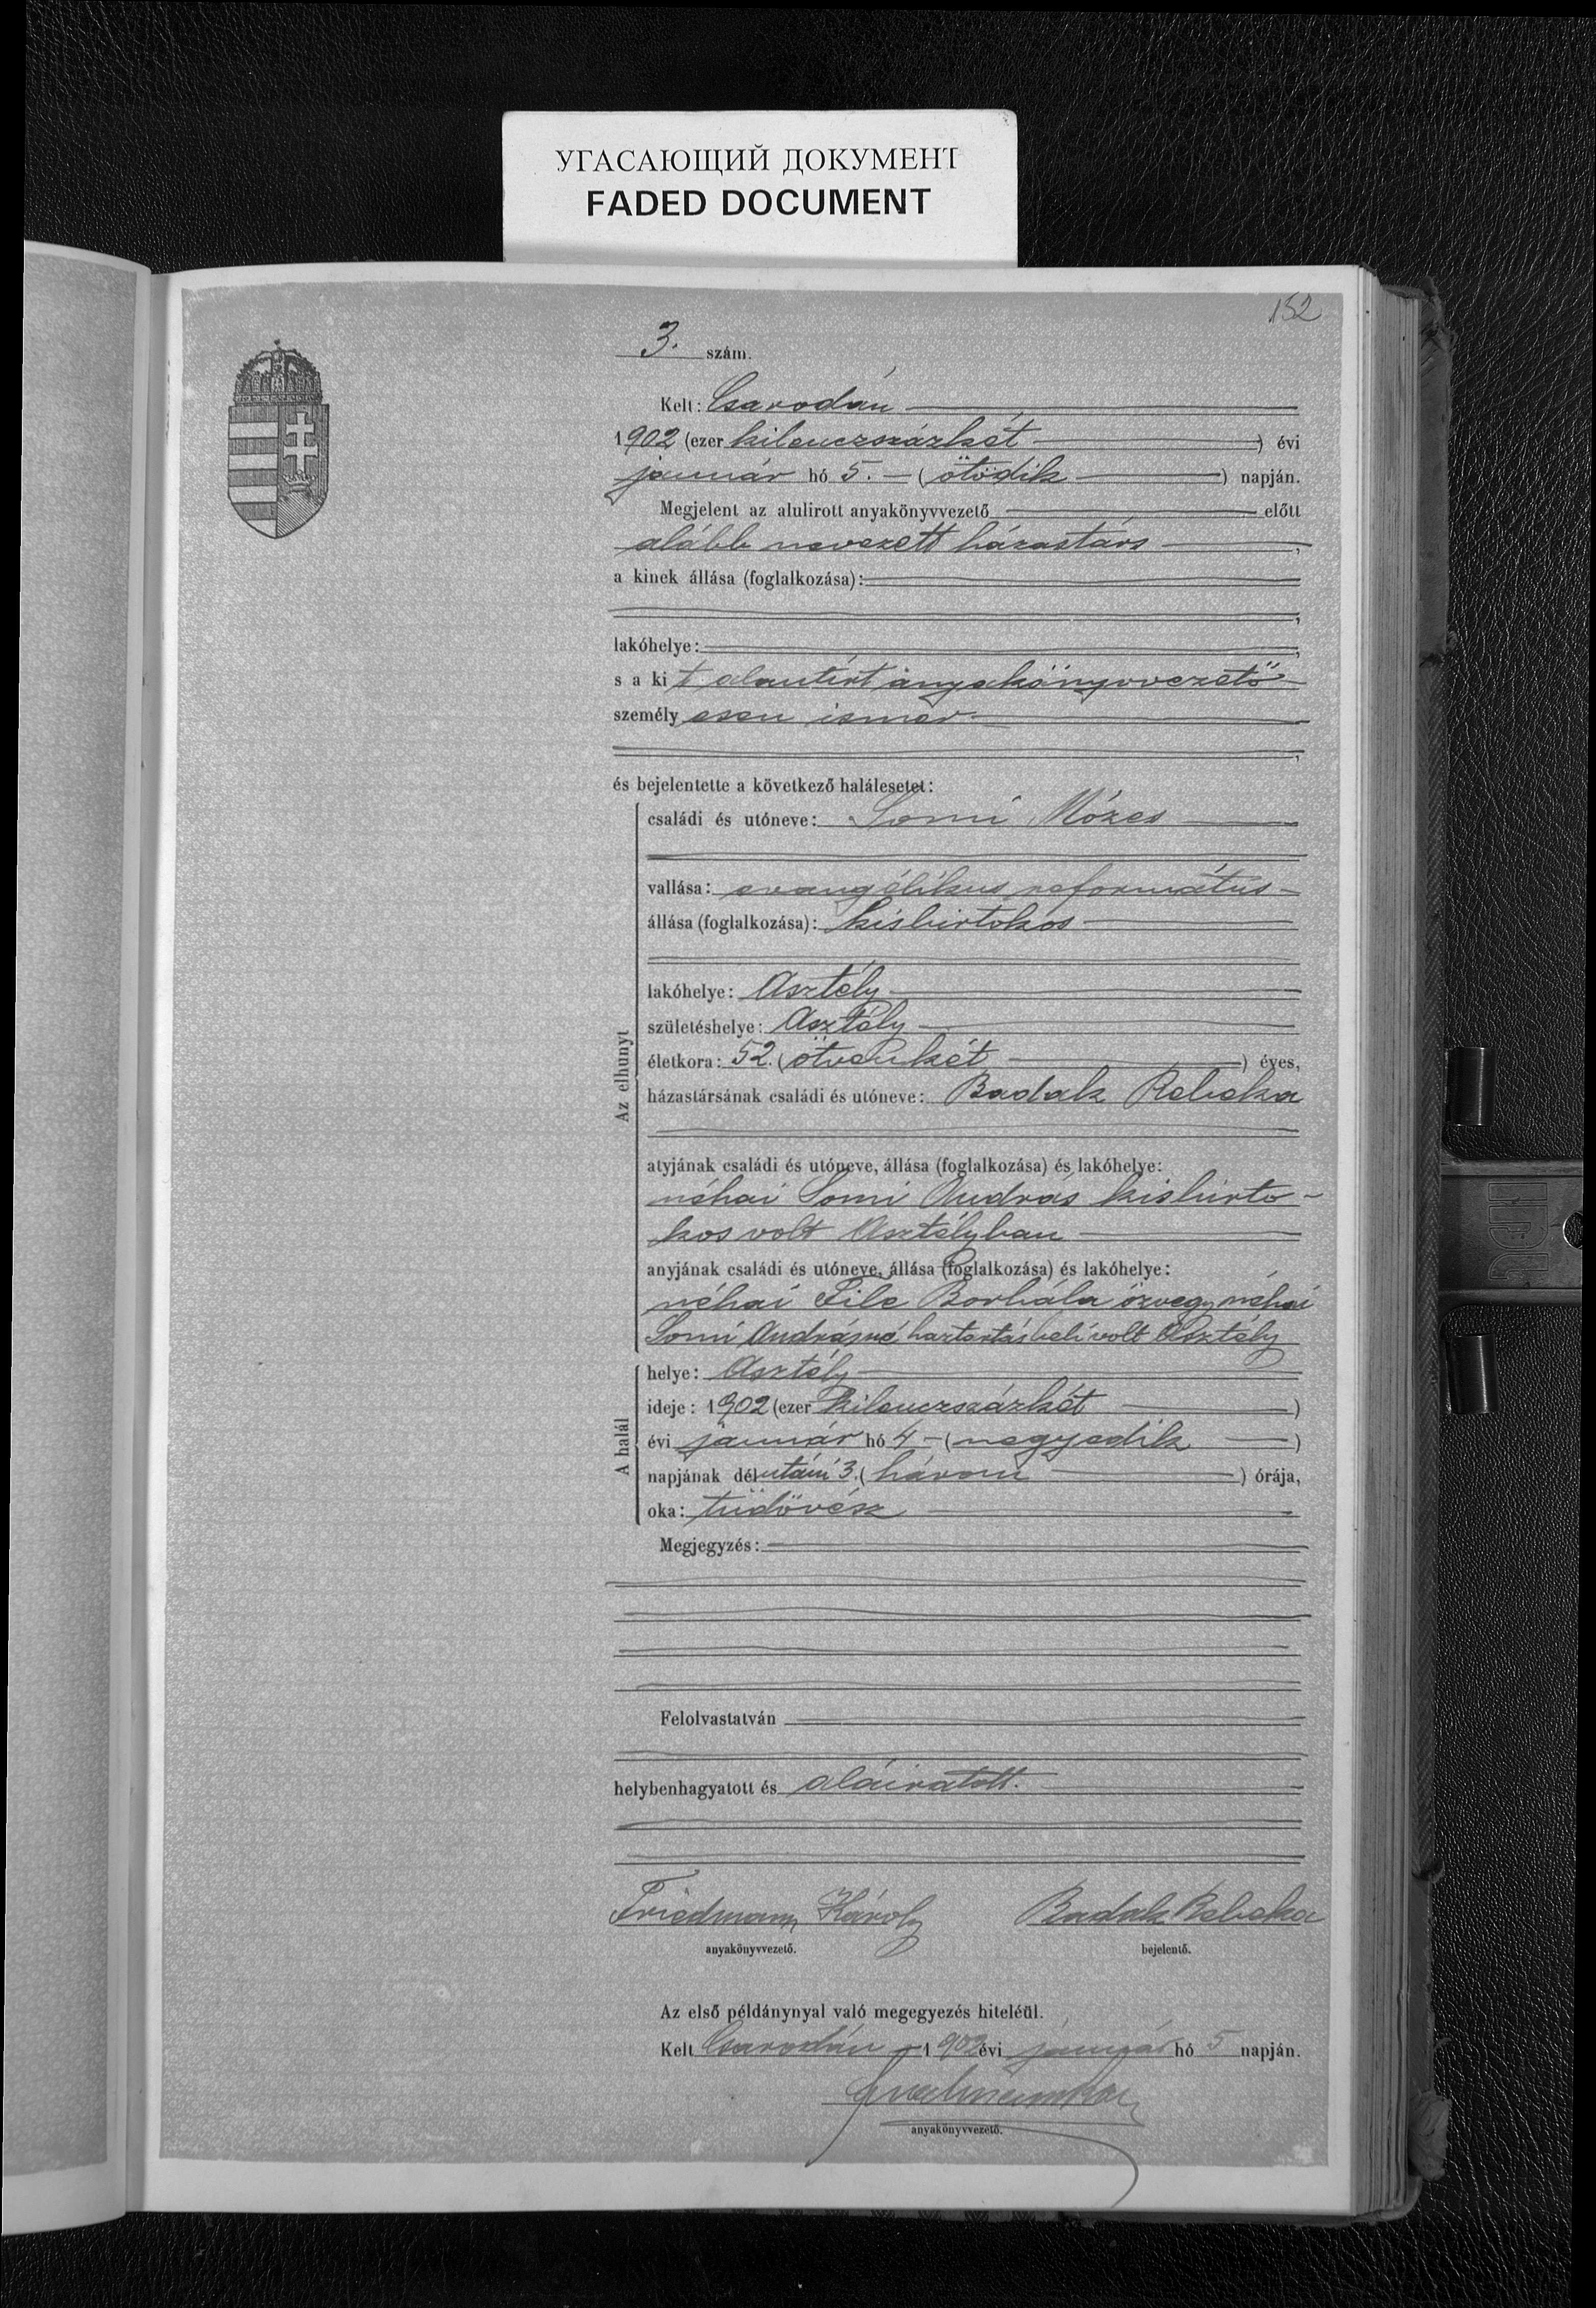 УГАСАЮЩИЙ ДОКУМЕНТ
FADED DOCUMENT
152
3. szám.
Kelt: Csarodán
1902 (ezer kilenczszázkét) évi
január hó 5. – (ötödik) napján.
Megjelent az alulirott anyakönyvvezető előtt
alább nevezett házastárs,
a kinek állása (foglalkozása):
lakóhelye:
s a kit alantírt anyakönyvvezető
személyesen ismer
és bejelentette a következő halálesetet:
családi és utóneve: Somi Mózes
vallása: evangélikus református
állása (foglalkozása): kisbirtokos
lakóhelye: Asztély
születéshelye: Asztély
életkora: 52. (ötvenkét) éves,
házastársának családi és utóneve: Badak Rebeka
Az elhunyt
atyjának családi és utóneve, állása (foglalkozása) és lakóhelye:
néhai Somi András kisbirto-
kos volt Asztélyban
anyjának családi és utóneve, állása (foglalkozása) és lakóhelye:
néhai File Borbála özvegy néhai
Somi Andrásné háztartásbeli volt Asztély
A halál
helye: Asztély
ideje: 1902 (ezer kilenczszázkét)
évi január hó 4 – (negyedik)
napjának délutáni 3. (három) órája,
oka: tüdővész
Megjegyzés:
Felolvastatván
helybenhagyatott és aláíratott.
Friedmann Károly Badak Rebeka
anyakönyvvezető. bejelentő.
Az első példánynyal való megegyezés hiteléül.
Kelt Csarodán 1902 évi január hó 5 napján.
anyakönyvvezető.